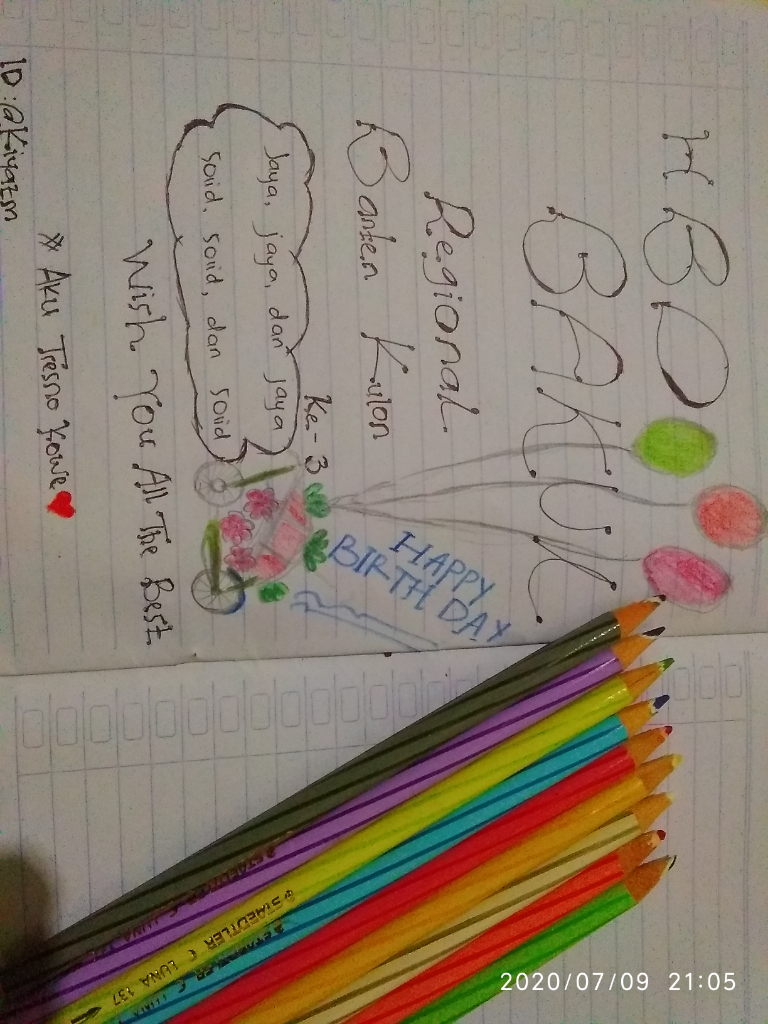 HBD
BAKUK
Regional
Banten Kulon
Ke-3
Jaya, jaya, dan jaya
Solid, solid, dan solid
HAPPY
BIRTH DAY
Wish You All The Best
* Aku Tresno Kowe
ID:@Kiyazm
STAEDTLER LUNA
STAEDTLER LUNA 137
STAEDTLER LUNA
2020/07/09 21:05